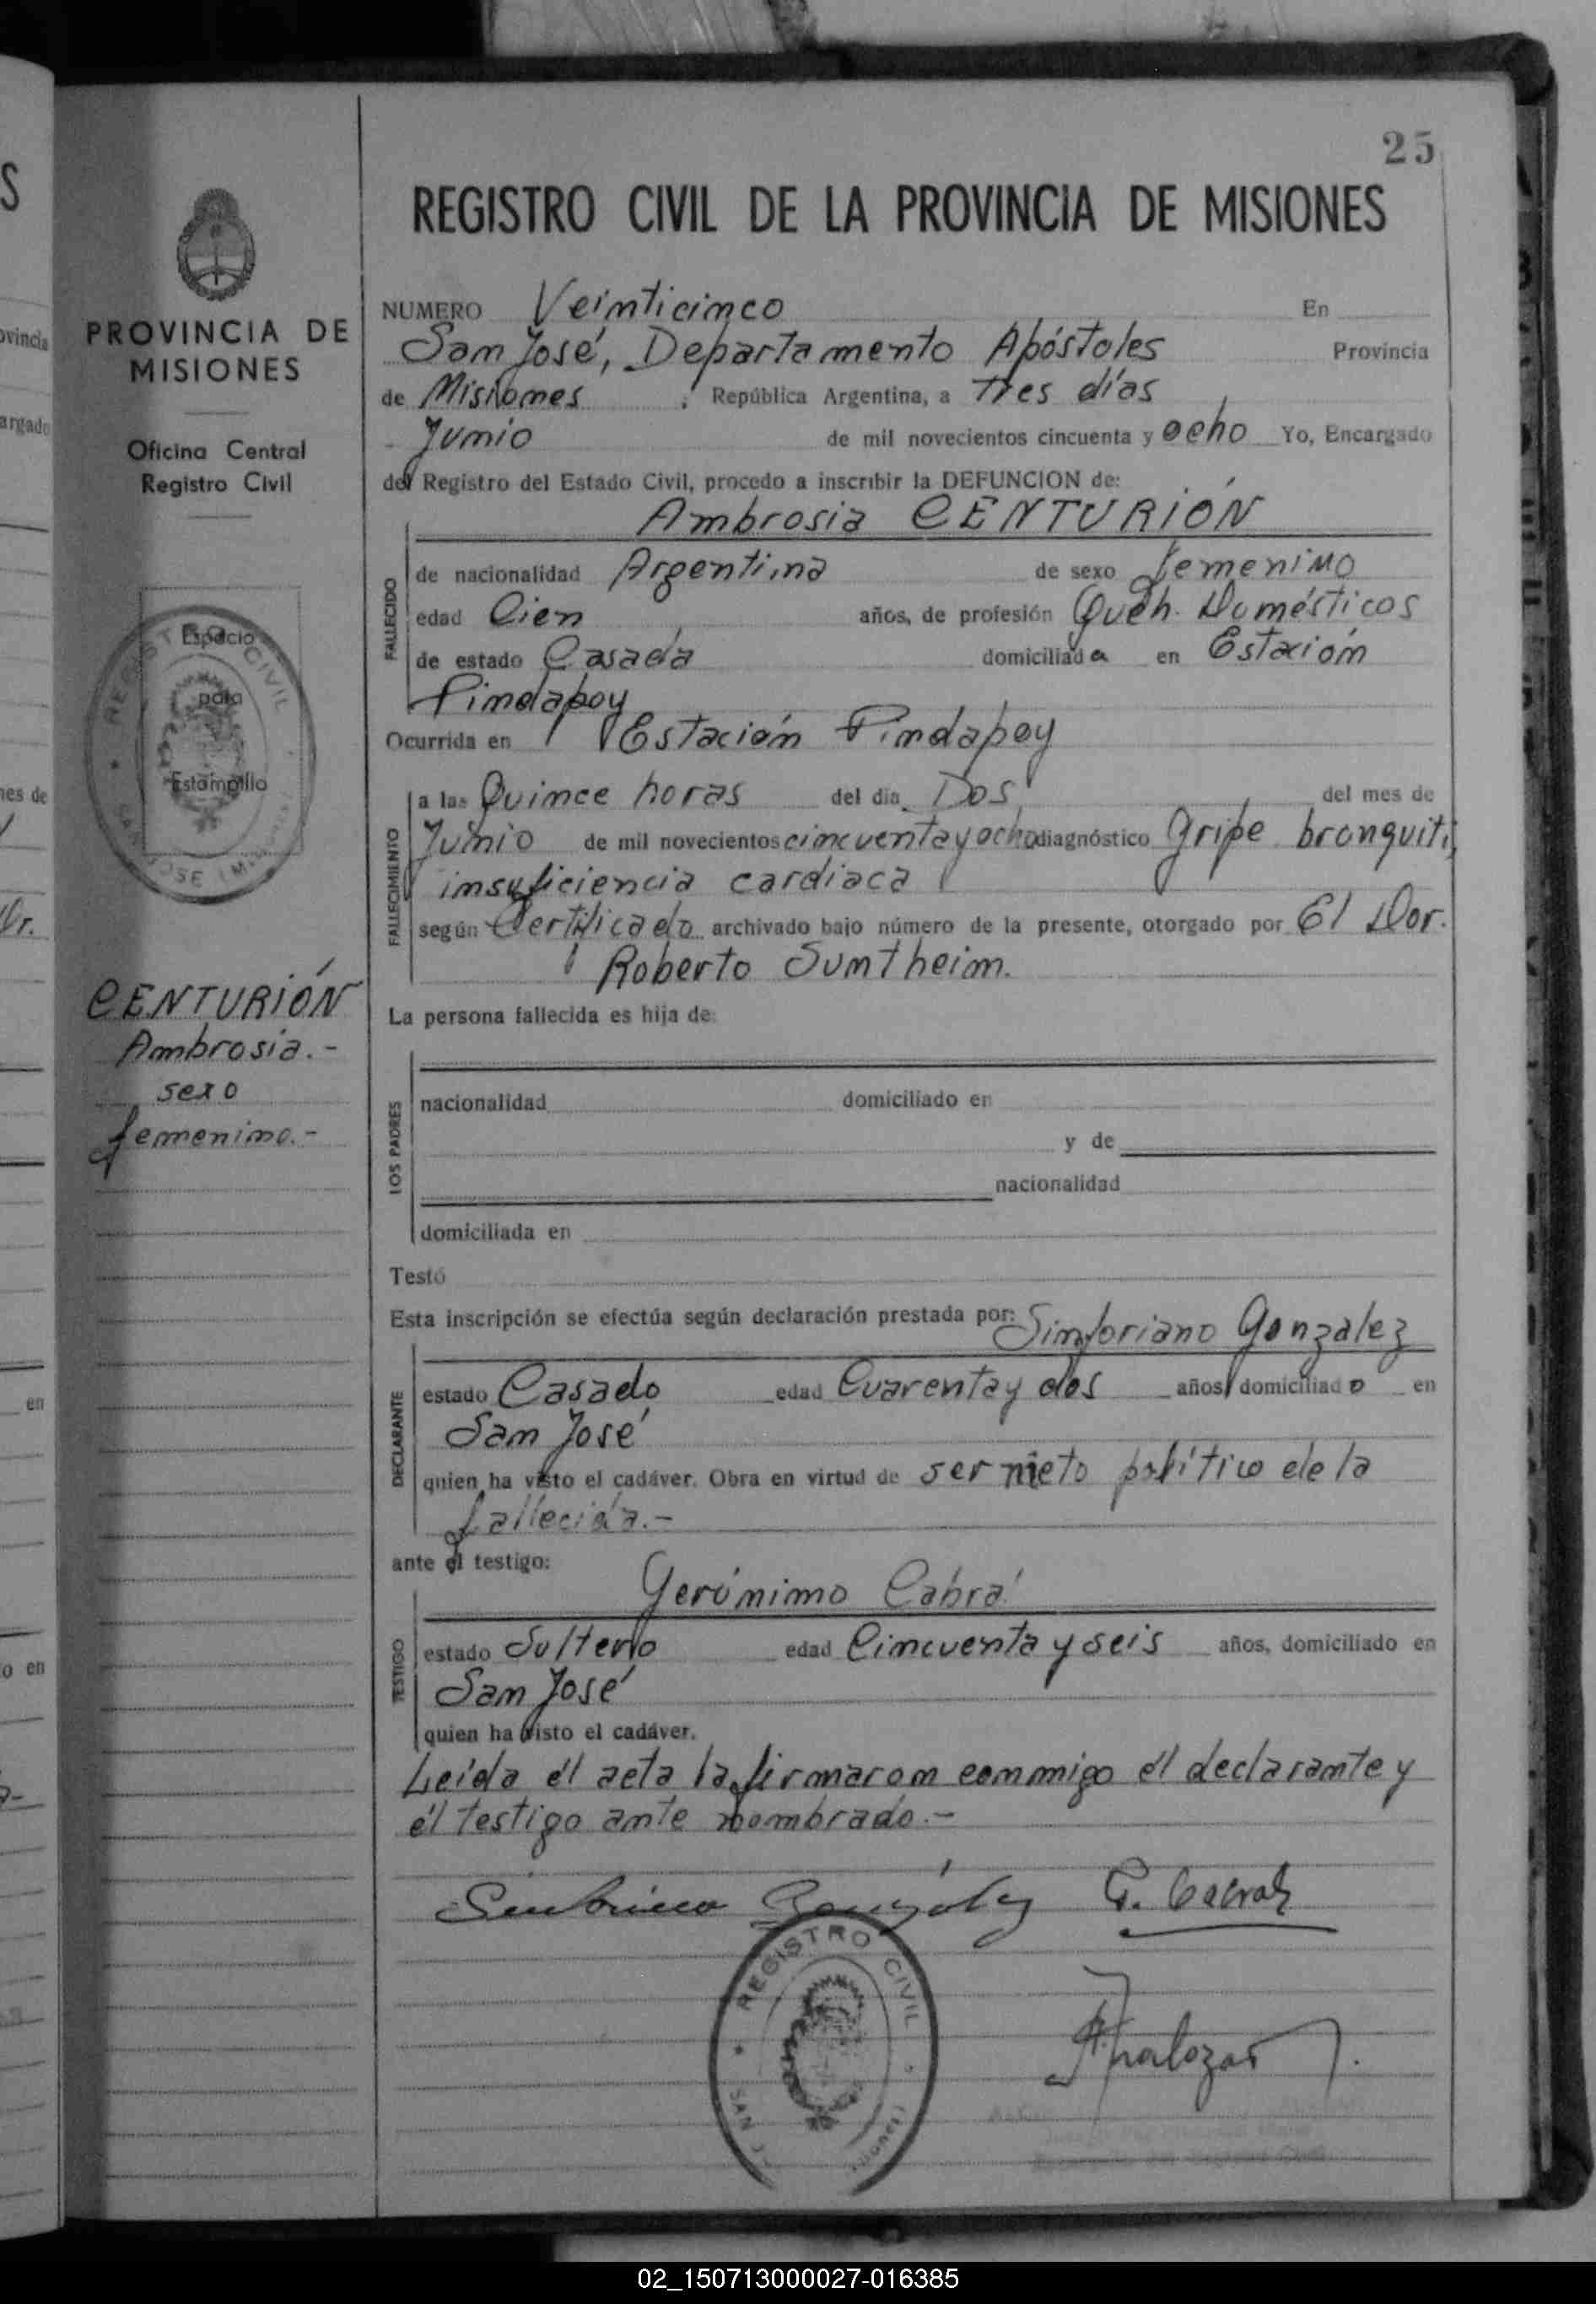 25
REGISTRO CIVIL DE LA PROVINCIA DE MISIONES
PROVINCIA DE
MISIONES
Oficina Central
Registro Civil
REGISTRO CIVIL
Espacio
para
Estampilla
SAN JOSE (Misiones)
CENTURIÓN
Ambrosia.-
sexo
femenino.-
NUMERO Veinticinco En
San José, Departamento Apóstoles Provincia
de Misiones, República Argentina, a tres días
Junio de mil novecientos cincuenta y ocho Yo, Encargado
del Registro del Estado Civil, procedo a inscribir la DEFUNCION de:
Ambrosia CENTURIÓN
FALLECIDO
de nacionalidad Argentina de sexo femenino
edad Cien años, de profesión Queh. Domésticos
de estado Casada domiciliada en Estación
Pindapoy
Ocurrida en Estación Pindapoy
FALLECIMIENTO
a las Quince horas del día Dos del mes de
Junio de mil novecientos cincuenta y ocho diagnóstico gripe bronquitis
insuficiencia cardiaca
según Certificado archivado bajo número de la presente, otorgado por El Dor.
Roberto Sumtheim.
La persona fallecida es hija de:
LOS PADRES
nacionalidad domiciliado en
y de
nacionalidad
domiciliada en
Testó
Esta inscripción se efectúa según declaración prestada por: Sinforiano Gonzalez
DECLARANTE
estado Casado edad Cuarenta y dos años domiciliado en
San José
quien ha visto el cadáver. Obra en virtud de ser nieto político de la
fallecida.-
ante el testigo:
Gerónimo Cabral
TESTIGO
estado Solterо edad Cincuenta y seis años, domiciliado en
San José
quien ha visto el cadáver.
Leída él acta la firmaron conmigo él declarante y
él testigo ante nombrado.-
G. Cabral
REGISTRO CIVIL
SAN
02_150713000027-016385